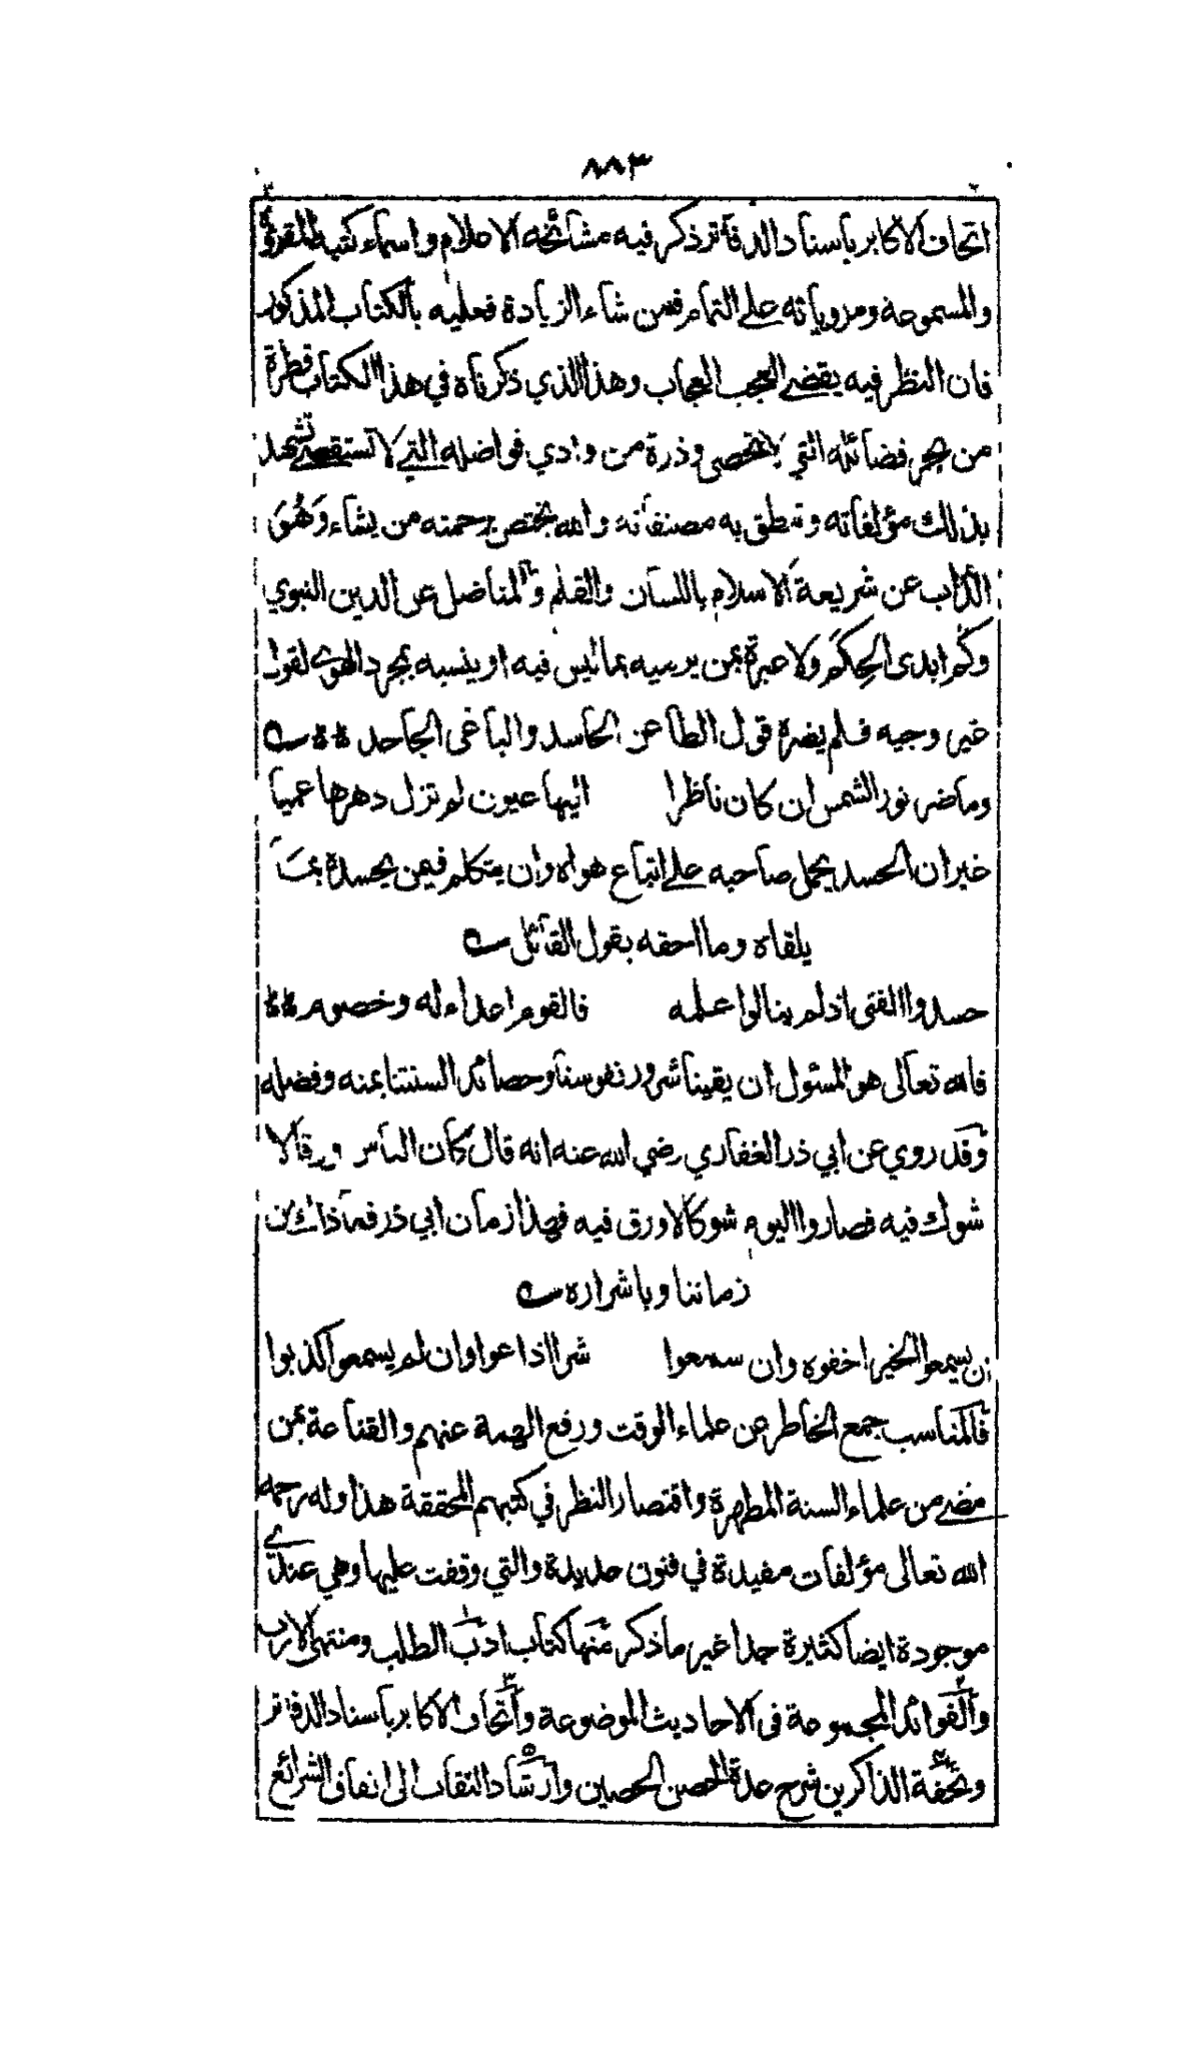 ٨٨٣
اتحاف الاكابر باسناد الدفاتر ذكر فيه مشائخه الاعلام واسماء كتبه المقروة
والمسموعة ومروياته على التمام فمن شاء الزيادة فعليه بالكتاب المذكور
فان النظر فيه يقضي العجب العجاب وهذا الذي ذكرناه في هذا الكتاب قطرة
من بحر فضائله التي لا تحصى وذرة من وادي فواضله التي لا تستقصى تشهد
بذلك مؤلفاته وتنطق به مصنفاته والله يختص برحمته من يشاء وَهُوَ
الذاب عن شريعة الاسلام باللسان والقلم والمناضل عن الدين النبوي
وكم ابدى الحِكَم ولا عبرة بمن يرميه بما ليس فيه او ينسبه بمجرد الهوى لقول
غير وجيه فلم يضره قول الطاعن الحاسد والباغي الجاحد ٥
وما ضر نور الشمس ان كان ناظرا اليها عيون لم تزل دهرها عميا
غير ان الحسد يحمل صاحبه على اتباع هواه وان يتكلم فيمن يحسده بما
يلقاه وما احقه بقول القائل
حسدوا الفتى اذ لم ينالوا علمه فالقوم اعداء له وخصوم
فالله تعالى هو المسئول ان يقينا شرور نفوسنا وحصائد السنتنا بمنه وفضله
وقد روي عن ابي ذر الغفاري رضي الله عنه انه قال كان الناس ورقا لا
شوك فيه فصاروا اليوم شوكا لا ورق فيه فهذا زمان ابي ذر فما ذاك من
زماننا وباشراره
ان يسمعوا الخير اخفوه وان سمعوا شرا اذاعوا وان لم يسمعوا كذبوا
فالمناسب جمع الخاطر عن علماء الوقت ورفع الهمة عنهم والقناعة بمن
مضى من علماء السنة المطهرة واقتصار النظر في كتبهم المحققة هذا وله رحمه
الله تعالى مؤلفات مفيدة في فنون عديدة والتي وقفت عليها وهي عندي
موجودة ايضا كثيرة جدا غير ما ذكر منها كتاب ادب الطلب ومنتهى الارب
والفوائد المجموعة في الاحاديث الموضوعة واتحاف الاكابر باسناد الدفاتر
وتحفة الذاكرين شرح عدة الحصن الحصين وارشاد الثقات الى اتفاق الشرائع